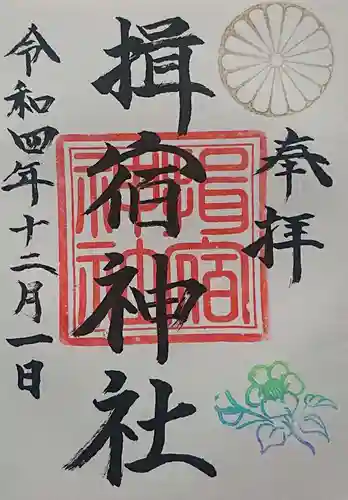 奉拝
揖宿神社
揖宿神社
令和四年十二月一日